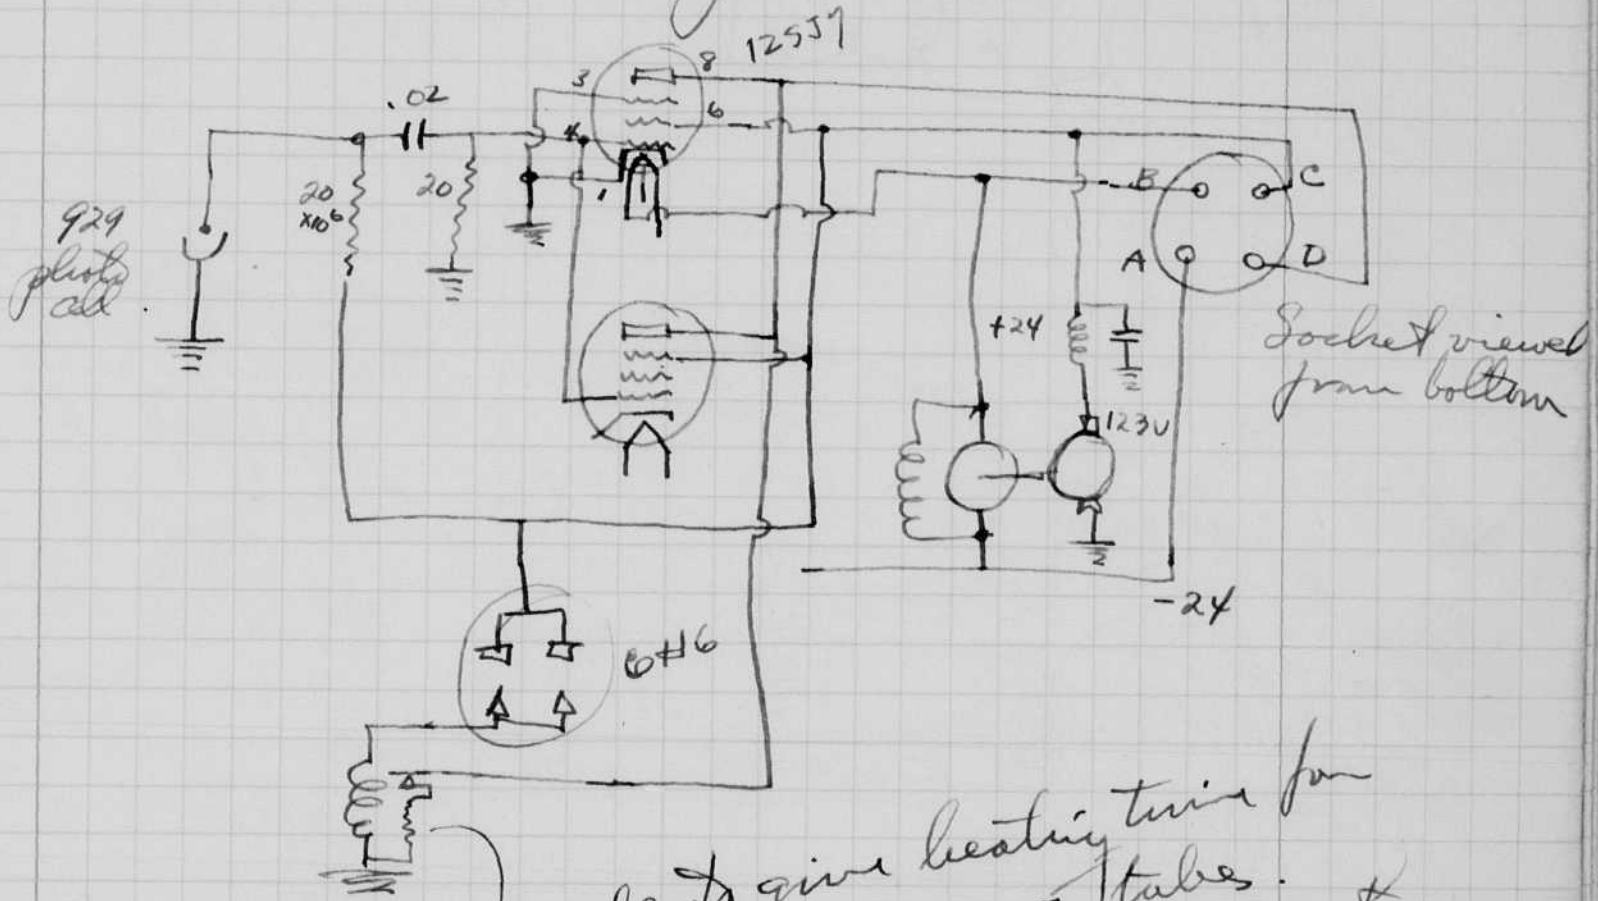 12SJ7
3
8
.02
6
4
20
x10⁶
20
1
929
photo
cell
B
C
A
D
+24
Socket viewed
from bottom
123V
-24
6H6
to give heating time for
tubes.